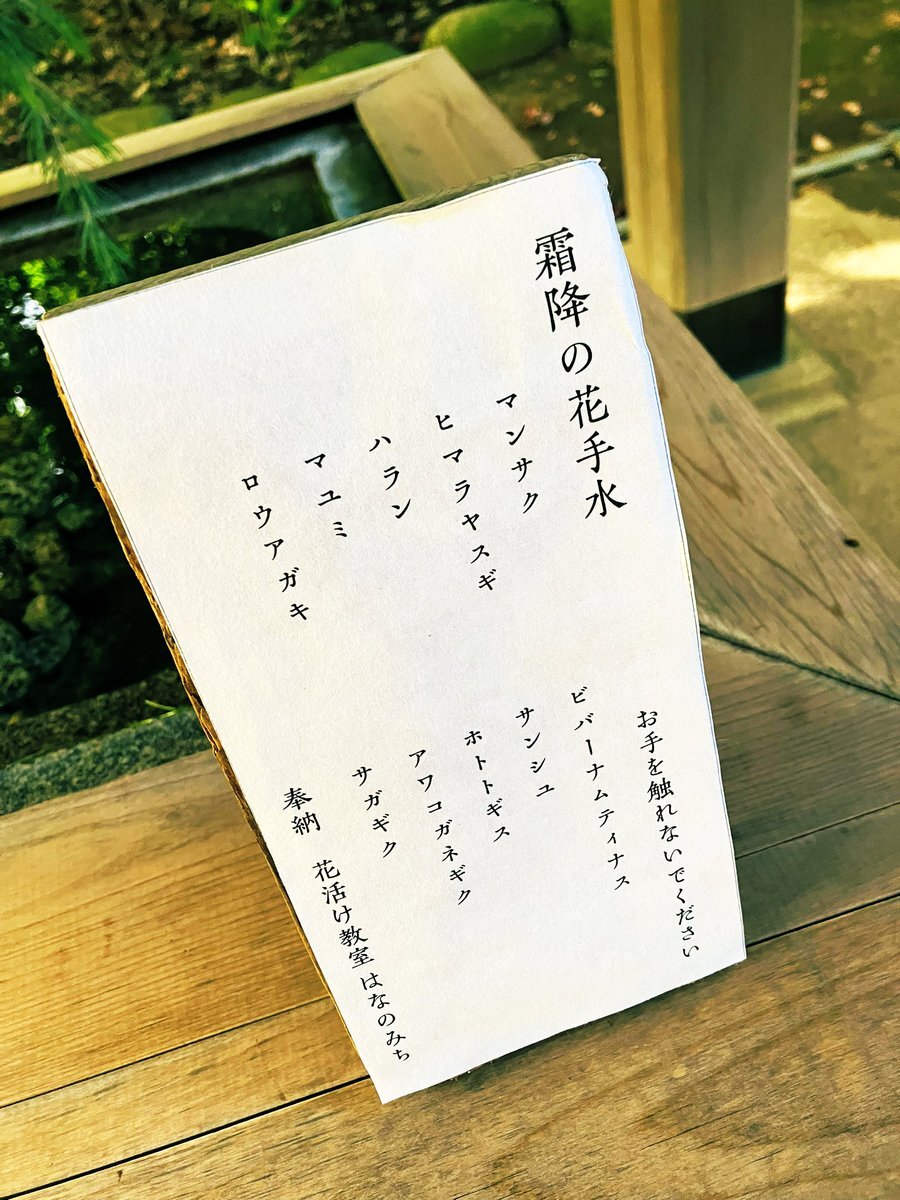 霜降の花手水
マンサク
ヒマラヤスギ
ハラン
マユミ
ロウアガキ
お手を触れないでください
ビバーナムティナス
サンシュユ
ホトトギス
アワコガネギク
サガギク
奉納 花活け教室 はなのみち